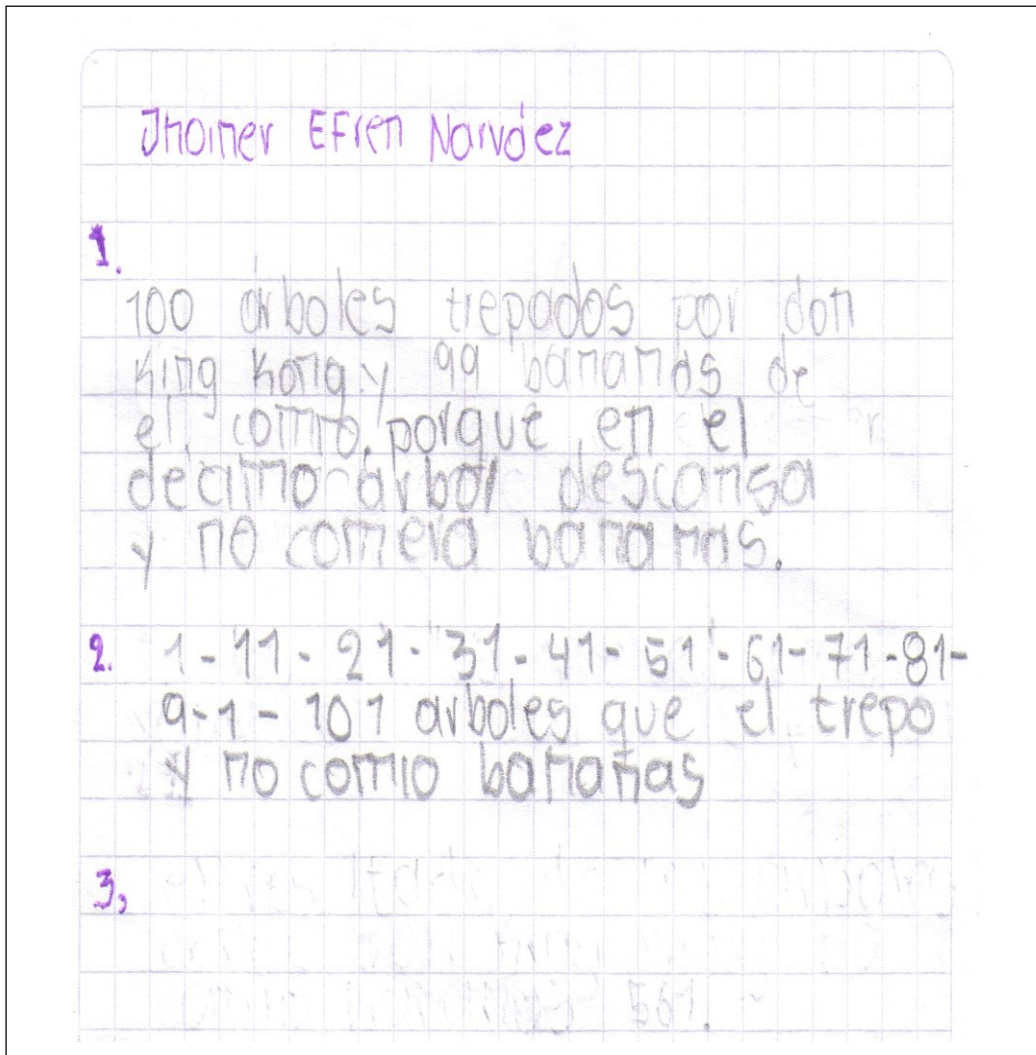 Jhoiner EFren Narváez
1.
100 árboles trepados por don
King Kong y 99 bananas de
el. comio, porque en el
decimo árbol descansa
y no comera bananas.
2. 1-11-21-31-41-51-61-71-81-
9-1-101 arboles que el trepo
y no comio bananas
3,